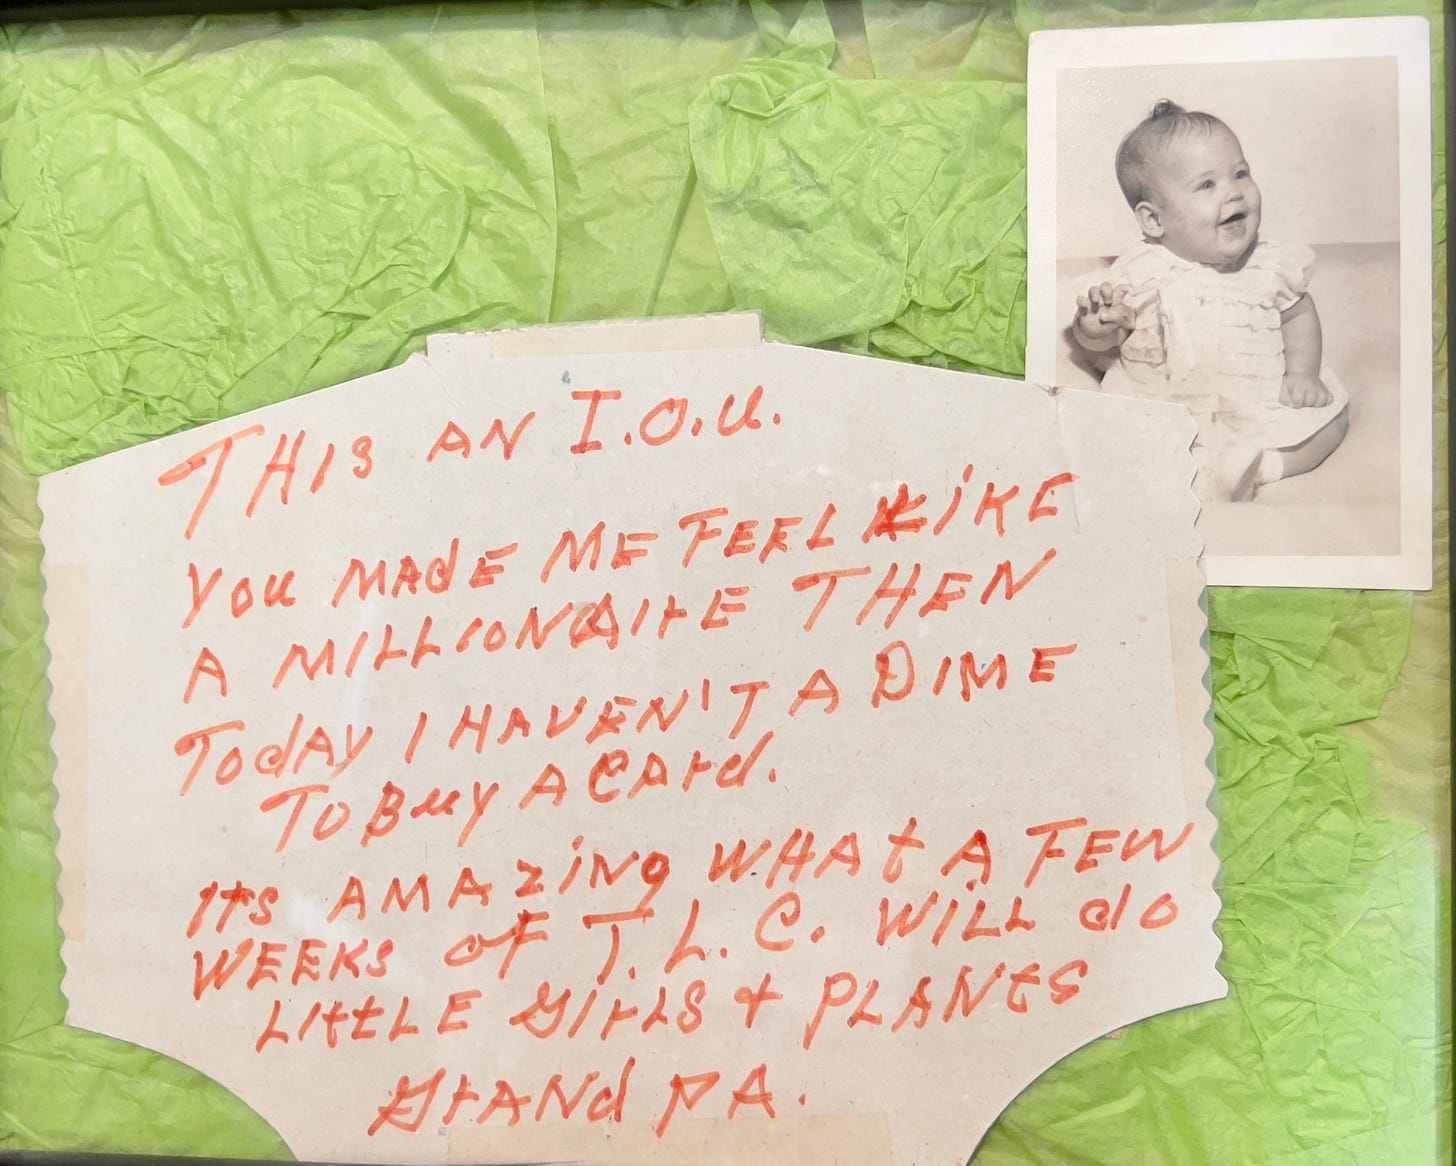 THIS AN I.O.U.
YOU MADE ME FEEL LIKE
A MILLIONAIRE THEN
TODAY I HAVEN'T A DIME
TO BUY A CARD.
ITS AMAZING WHAT A FEW
WEEKS OF T.L.C. WILL do
LITTLE GIRLS + PLANTS
GRANd PA.